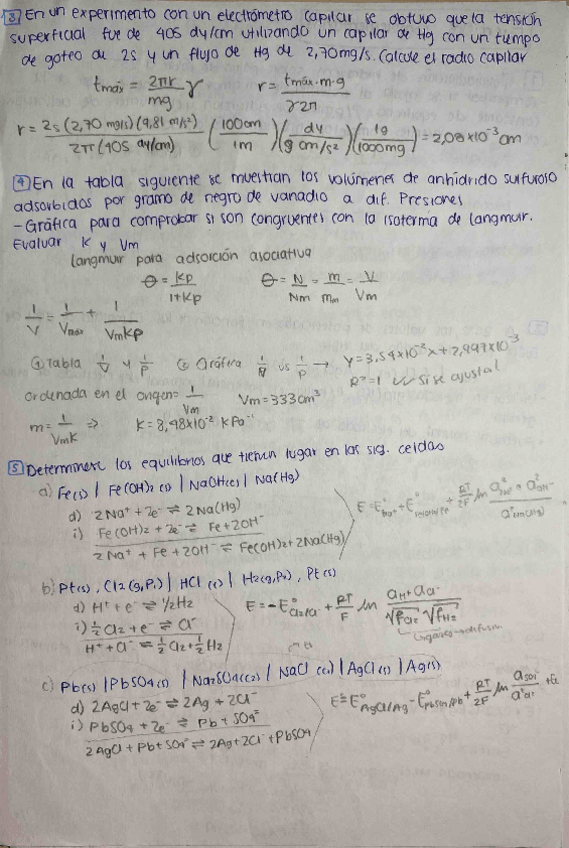 3 En un experimento con un electrómetro capilar se obtuvo que la tensión
superficial fue de 405 dy/cm utilizando un capilar de Hg con un tiempo
de goteo de 2s y un flujo de Hg de 2,70 mg/s. Calcule el radio capilar
tmáx = 2πr/mg γ   r = tmáx·m·g/γ2π
r = 2s(2,70 mg/s)(9,81 m/s²)/2π(405 dy/cm) (100cm/1m)(dy/g cm/s²)(1g/1000mg) = 2,08x10⁻³ cm
4 En la tabla siguiente se muestran los volúmenes de anhídrido sulfuroso
adsorbidos por gramo de negro de vanadio a dif. Presiones
-Gráfica para comprobar si son congruentes con la isoterma de langmuir.
Evaluar K y Vm
Langmuir para adsorción asociativa
θ = Kp/1+Kp   θ = N/Nm = m/mm = V/Vm
1/V = 1/Vmax + 1/VmKp
① Tabla 1/V y 1/P ② Gráfica 1/V vs 1/P → Y=3,54x10⁻²x+2,997x10⁻³
R²=1 si se ajusta!
ordenada en el origen = 1/Vm   Vm=333cm³
m = 1/VmK ⇒ K=8,48x10⁻² kPa⁻¹
5 Determinese los equilibrios que tienen lugar en las sig. celdas
a) Fe(s) | Fe(OH)2 (s) | NaOH(cs) | Na(Hg)
d) 2Na⁺ + 2e⁻ ⇌ 2Na(Hg)
i) Fe(OH)2 + 2e⁻ ⇌ Fe + 2OH⁻
2Na⁺ + Fe + 2OH⁻ ⇌ Fe(OH)2 + 2Na(Hg)
b) Pt(s), Cl2(g,P1) | HCl (c) | H2(g,P2), Pt(s)
d) H⁺ + e⁻ ⇌ ½H2
i) ½Cl2 + e⁻ ⇌ Cl⁻
H⁺ + Cl⁻ ⇌ ½Cl2 + ½H2
E = -E°Cl2/Cl⁻ + RT/F ln aH⁺ aCl⁻/√PCl2 √PH2
c) Pb(s) | PbSO4(s) | Na2SO4(c2) | NaCl (c1) | AgCl(s) | Ag(s)
d) 2AgCl + 2e⁻ ⇌ 2Ag + 2Cl⁻
i) PbSO4 + 2e⁻ ⇌ Pb + SO4²⁻
2AgCl + Pb + SO4²⁻ ⇌ 2Ag + 2Cl⁻ + PbSO4